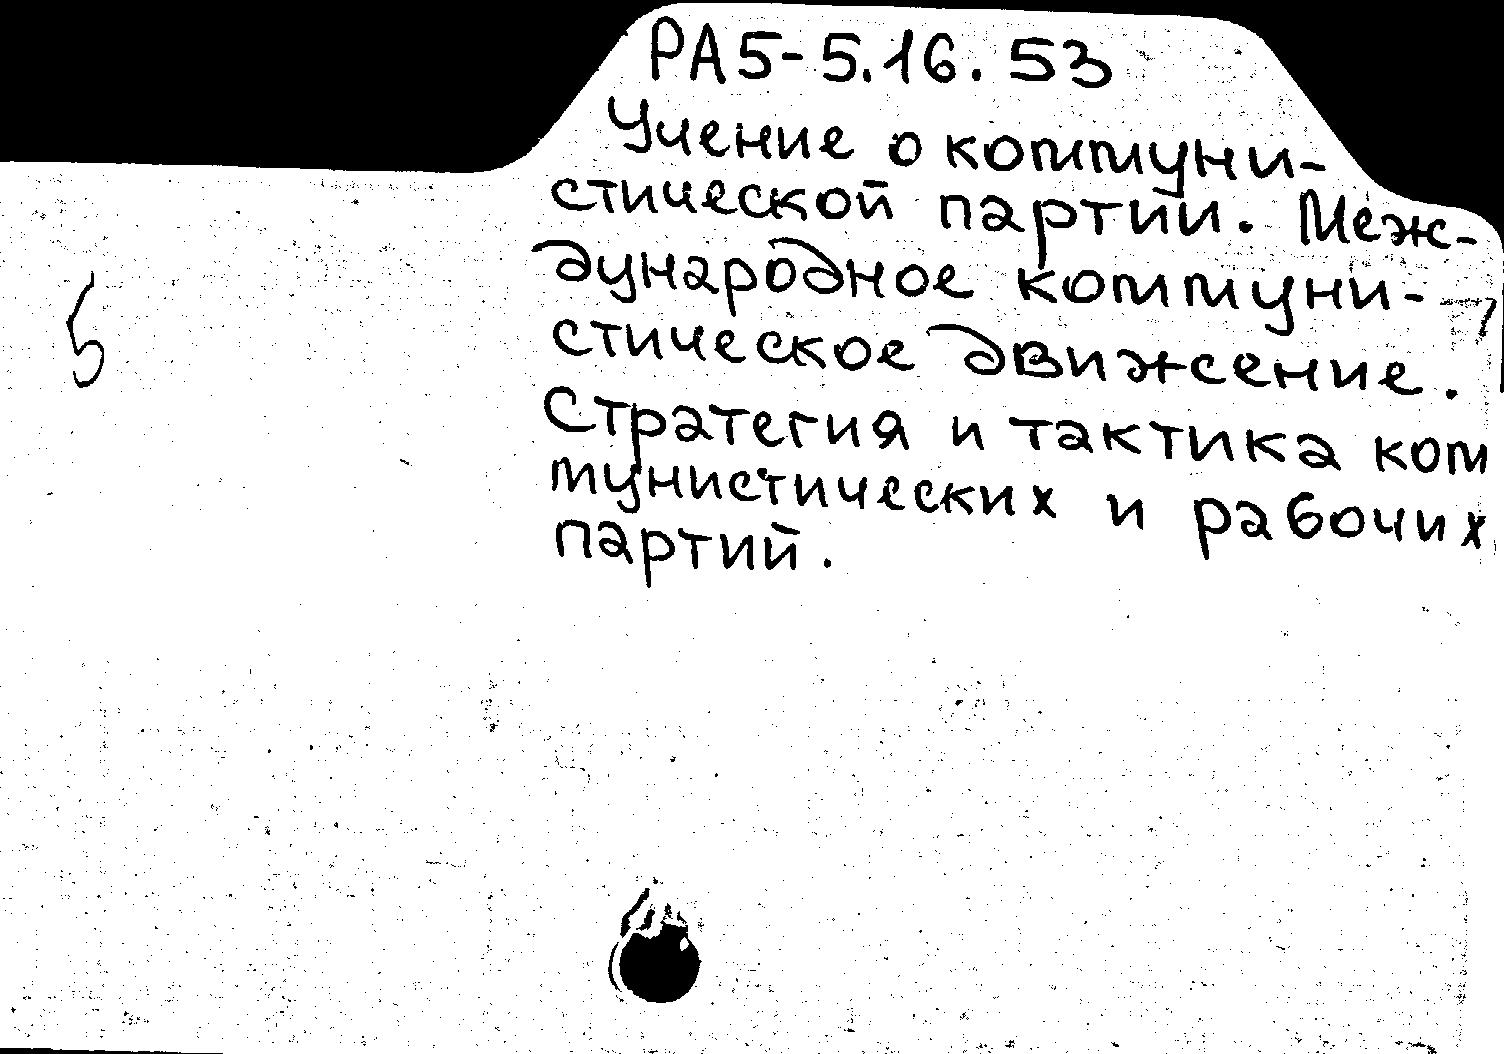 РА5-5.16.53
Учение о коммуни-
стической партии. Меж-
дународное коммуни-
стическое движение.
Стратегия и тактика ком
мунистических и рабочих
партий.
5